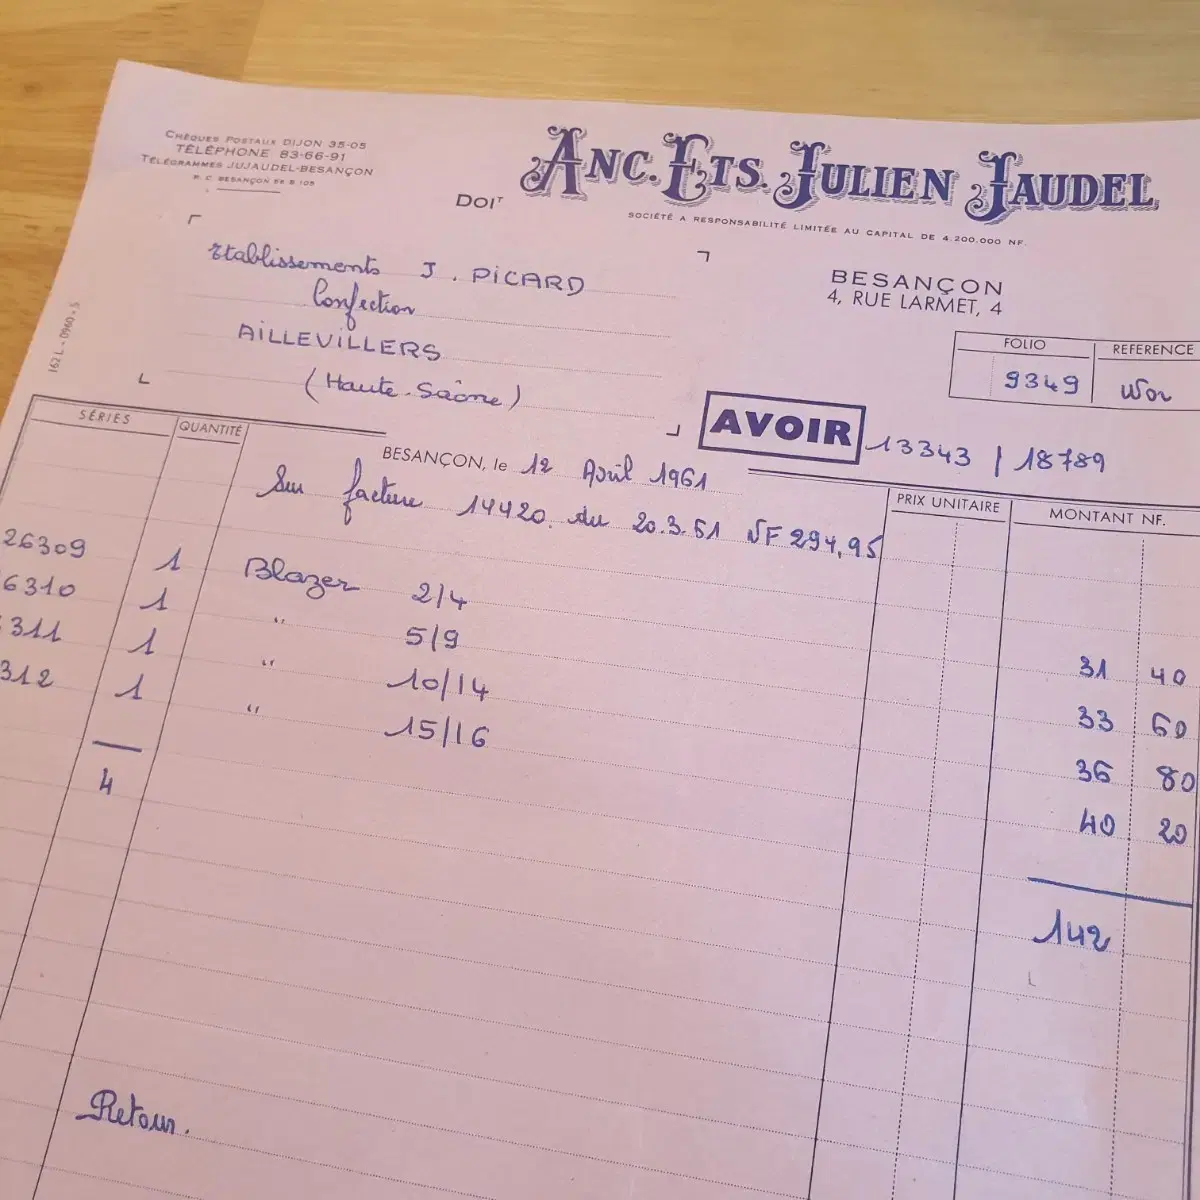 CHÈQUES POSTAUX DIJON 35-05
TÉLÉPHONE 83-66-91
TÉLÉGRAMMES JUJAUDEL-BESANÇON
R. C. BESANÇON 56 B 105
ANC. ETS. JULIEN JAUDEL
SOCIÉTÉ A RESPONSABILITÉ LIMITÉE AU CAPITAL DE 4.200.000 NF.
DOIT
BESANÇON
4, RUE LARMET, 4
Etablissements J. PICARD
Confection
AILLEVILLERS
(Haute-Saône)
162 L - 0960 - 5
FOLIO REFERENCE
9349
AVOIR 13343 / 18789
SÉRIES QUANTITÉ PRIX UNITAIRE MONTANT NF.
BESANÇON, le 12 Avril 1961
Sur facture 14420. du 20.3.61 NF 294,95
26309 1 Blazer 2/4 31 40
6310 1 " 5/9 33 60
311 1 " 10/14 36 80
312 1 " 15/16 40 20
4 142
Retour.